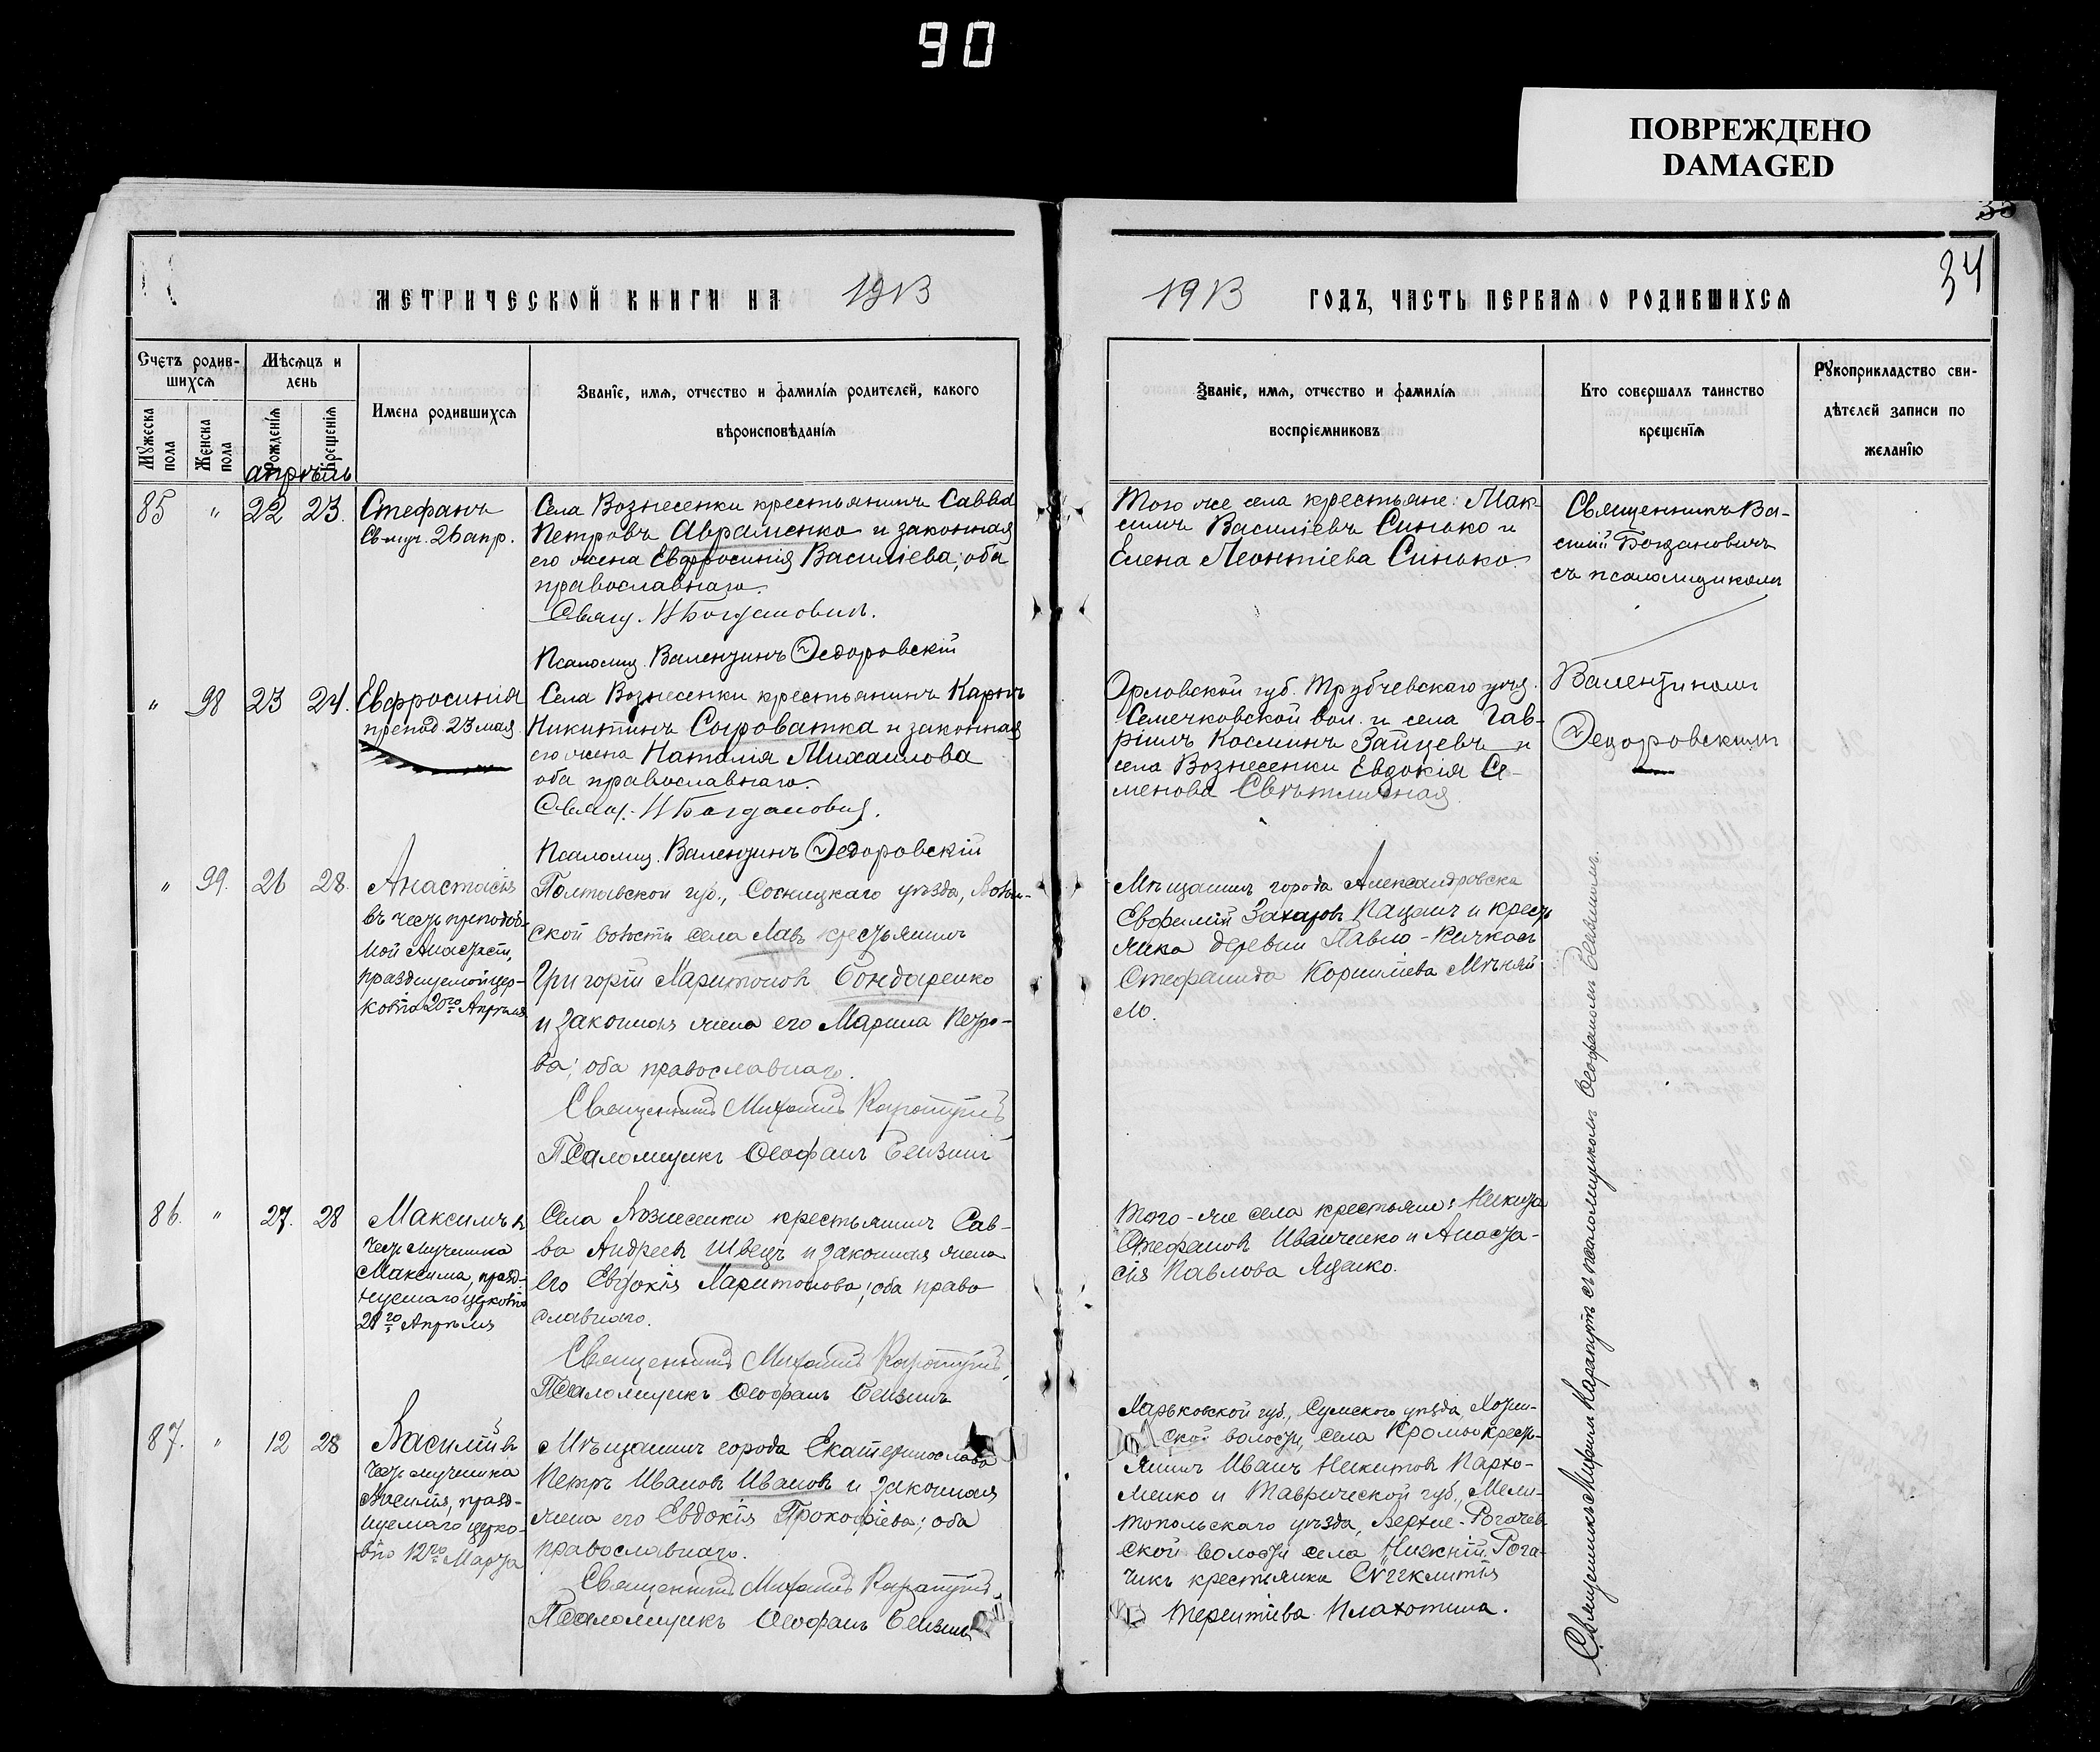 90
ПОВРЕЖДЕНО
DAMAGED
33
34
МЕТРИЧЕСКОЙ КНИГИ НА 1913
1913 ГОДЪ, ЧАСТЬ ПЕРВАЯ О РОДИВШИХСЯ
Счетъ родив-
шихся
Мѣсяцъ и
день
Мужеска
пола
Женска
пола
Рожденія
Крещенія
Имена родившихся
Званіе, имя, отчество и фамилія родителей, какого
вѣроисповѣданія
Званіе, имя, отчество и фамилія
воспріемниковъ
Кто совершалъ таинство
крещенія
Рукоприкладство сви-
дѣтелей записи по
желанію
апрѣль
85 " 22 23.
Стефанъ
Св. муч. 26 апр.
Села Вознесенки крестьянинъ Савва
Петровъ Авраменко и законная
его жена Евфросинія Васильева; оба
православнаго.
Свящ. Богдановичъ.
Псаломщ. Валентинъ Ѳедоровскій
Того же села крестьяне: Мак-
симъ Василіевъ Синько и
Елена Леонтіева Синько.
Священникъ Ва-
силій Богдановичъ
съ псаломщикомъ
Валентиномъ
Ѳедоровскимъ
" 98 23 24.
Евфросинія
препод. 23 мая.
Села Вознесенки крестьянинъ Карпъ
Никитинъ Сыроватка и законная
его жена Наталія Михаилова
оба православнаго.
Свящ. Богдановичъ.
Псаломщ. Валентинъ Ѳедоровскій
Орловской губ. Трубчевскаго уѣз.
Семечковской вол. и села Гав-
ріилъ Косминъ Зайцевъ и
села Вознесенки Евдокія Се-
менова Свѣтличная.
" 99. 26 28.
Анастасія
въ честь преподоб-
ной Анастасіи,
празднуемой цер-
ковію 20го Апрѣля
Полтавской губ., Сосницкаго уѣзда,
ской волости села Лавъ крестьянинъ
Григорій Харитоновъ Бондаренко
и законная жена его Марина Петро-
ва; оба православнаго.
Священникъ Михаилъ Карапутъ
Псаломщикъ Ѳеофанъ
Мѣщанинъ города Александровска
Евфимій Захаровъ Пацанъ и кресть
янка деревни Павло-Кичкасъ
Стефанида Корниліева Мѣняй
ло.
86. " 27. 28
Максимъ въ
честь мученика
Максима, празд-
нуемаго церковію
28го Апрѣля
Села Вознесенки крестьянинъ Сав-
ва Андреевъ Швецъ и законная жена
его Евдокія Харитонова; оба право
славнаго.
Священникъ Михаилъ Карапутъ
Псаломщикъ Ѳеофанъ
Того-же села крестьяне: Никита
Стефановъ Иванченко и Анаста-
сія Павлова Яценко.
87. " 12 28
Василій въ
честь мученика
Василія, празд-
нуемаго церко-
вію 12го Марта
Мѣщанинъ города Екатеринослава
Петръ Ивановъ Ивановъ и законная
жена его Евдокія Прокофіева; оба
православнаго.
Священникъ Михаилъ Карапутъ
Псаломщикъ Ѳеофанъ
Харьковской губ., Сумского уѣзда, Хотѣн-
ской волости, села Кромы крест-
янинъ Иванъ Никитовъ Пархо-
менко и Таврической губ., Мели-
топольскаго уѣзда, Верхне-Рогачев
ской волости села Нижній Рога-
чикъ крестьянка Сѵгклитія
Терентіева Плахотина.
Священникъ Михаилъ Карапутъ съ псаломщикомъ Ѳеофаномъ